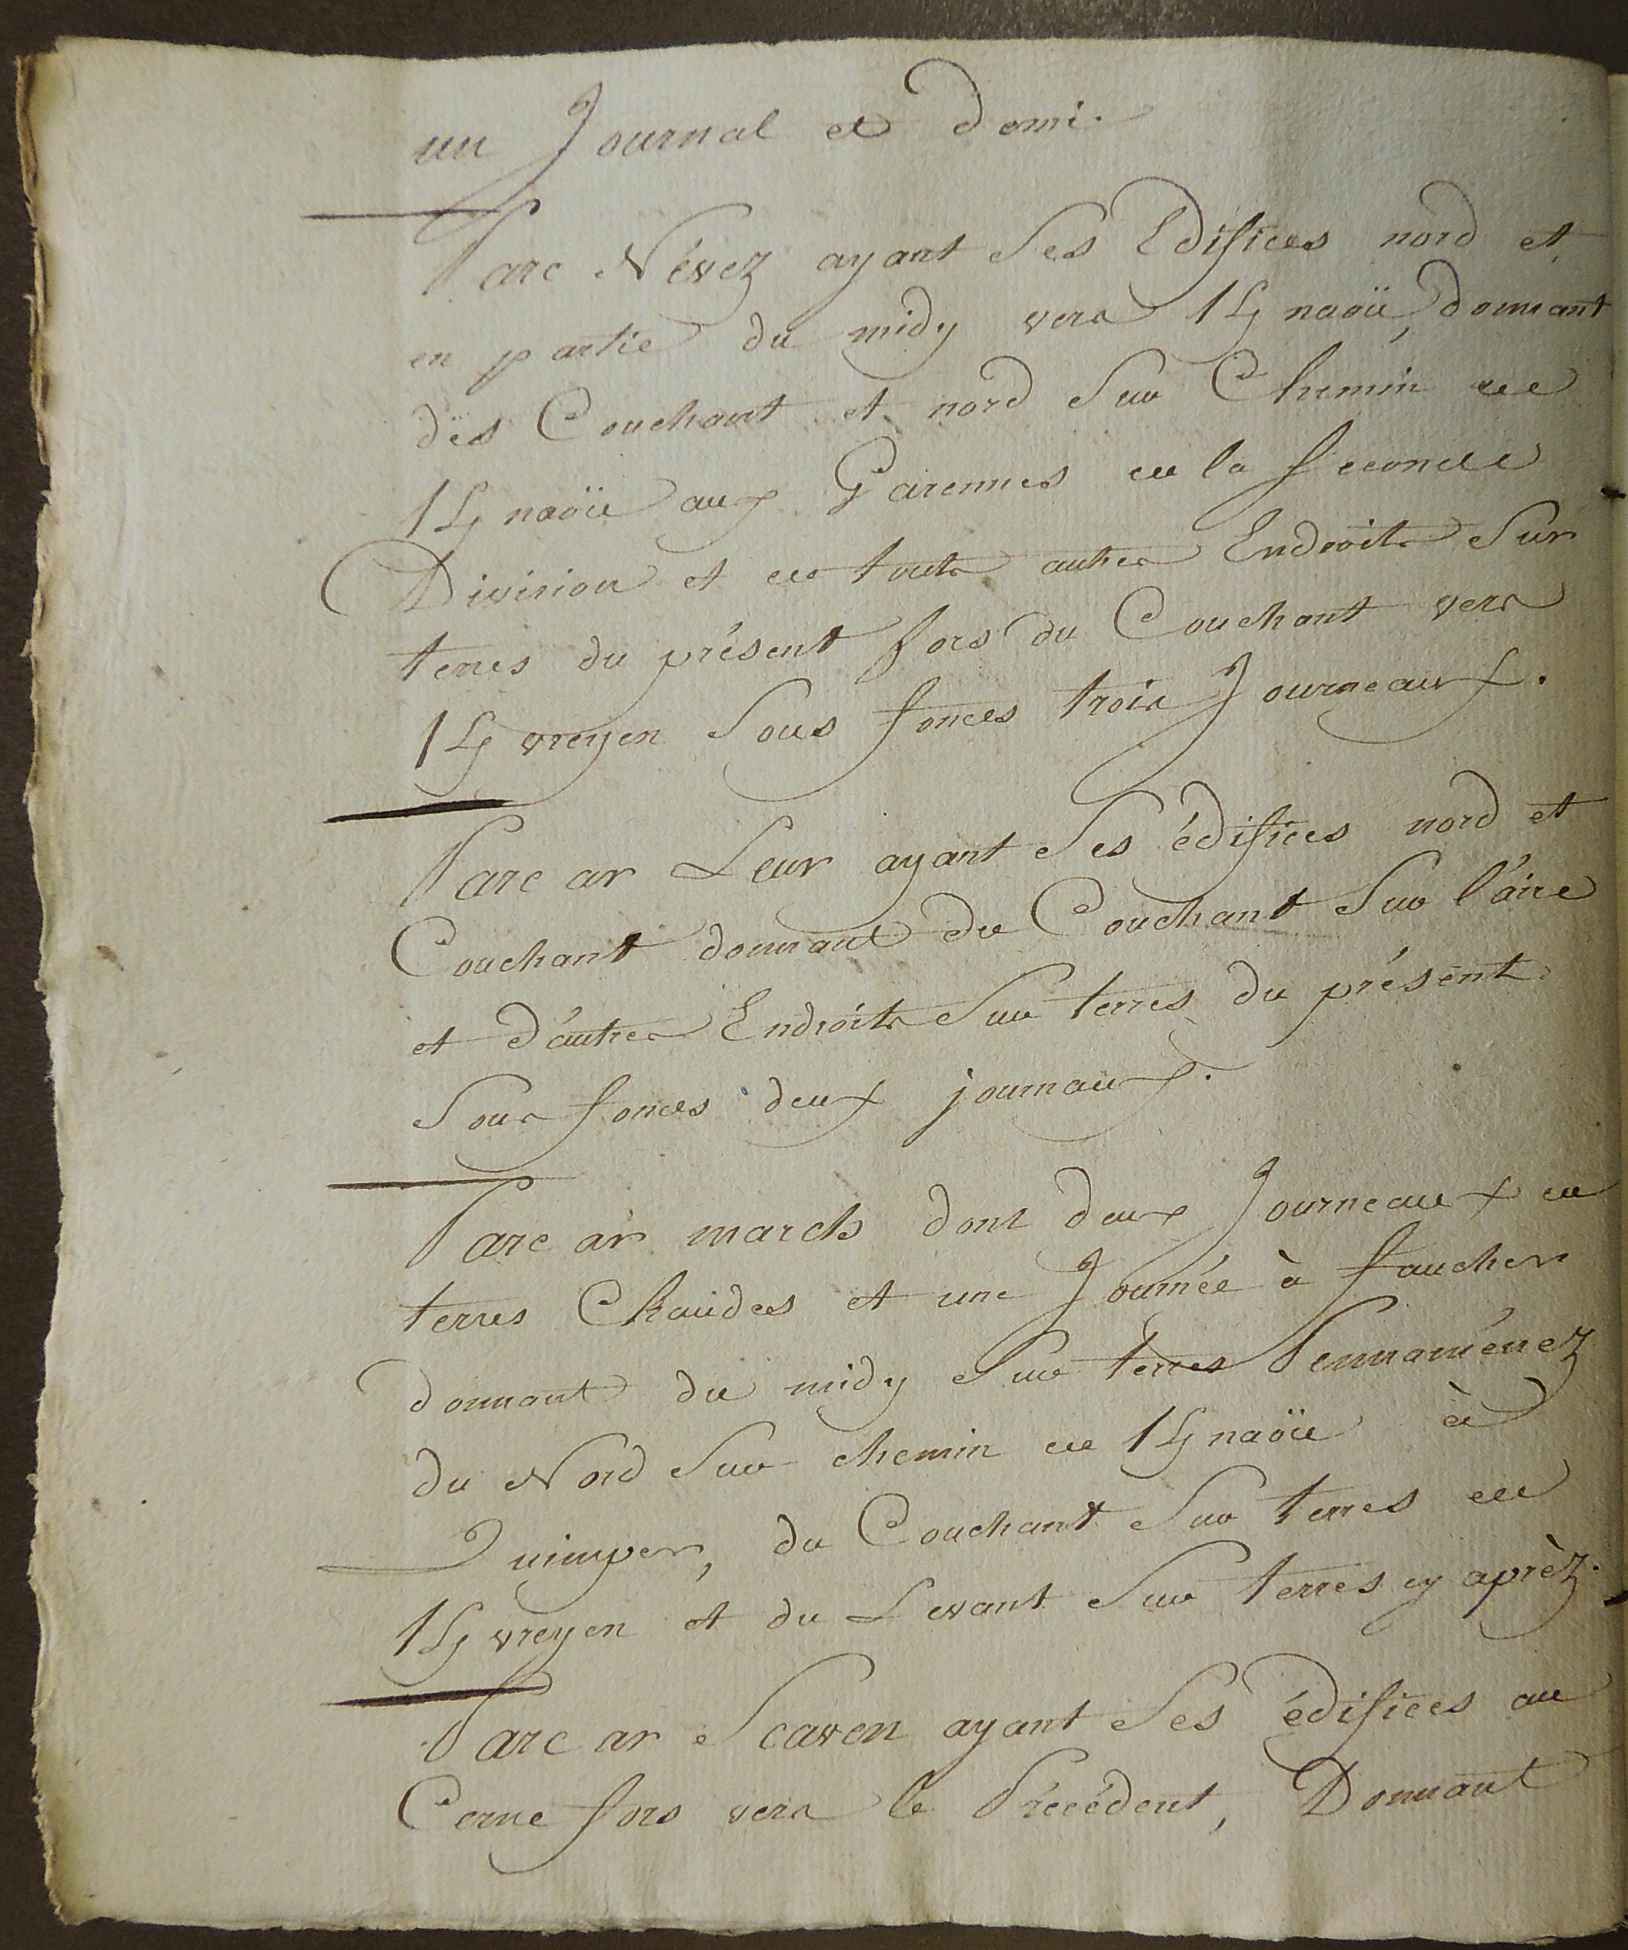 un Journal et demi.
Parc Névez ayant Ses Edifices nord et
en partie du midy vers Knaoü, donnant
dës Couchant et nord Sur Chemin de
Knaoüe aux Garennes de la Seconde
Division et de touts autres Endroits Sur
terres du présent fors du Couchant vers
Kvreyen Sous fonces trois Journeaux.
Parc ar Leur ayant Ses édifices nord et
Couchant donnant du Couchant Sur l'aire
et d'autres Endroits Sur terres du présent
Sous fonces deux journaux.
Parc ar march dont deux Journeaux de
terres Chaudes et une Journée à faucher
donnant du midy Sur terres Pennaménez
du Nord Sur chemin de Knaoüe à
Quimper, du Couchant Sur terres de
Kvreyen et du Levant Sur terres cy aprèz.
Parc ar Scaven ayant Ses édifices au
Cerne fors vers le Précédent, Donnant